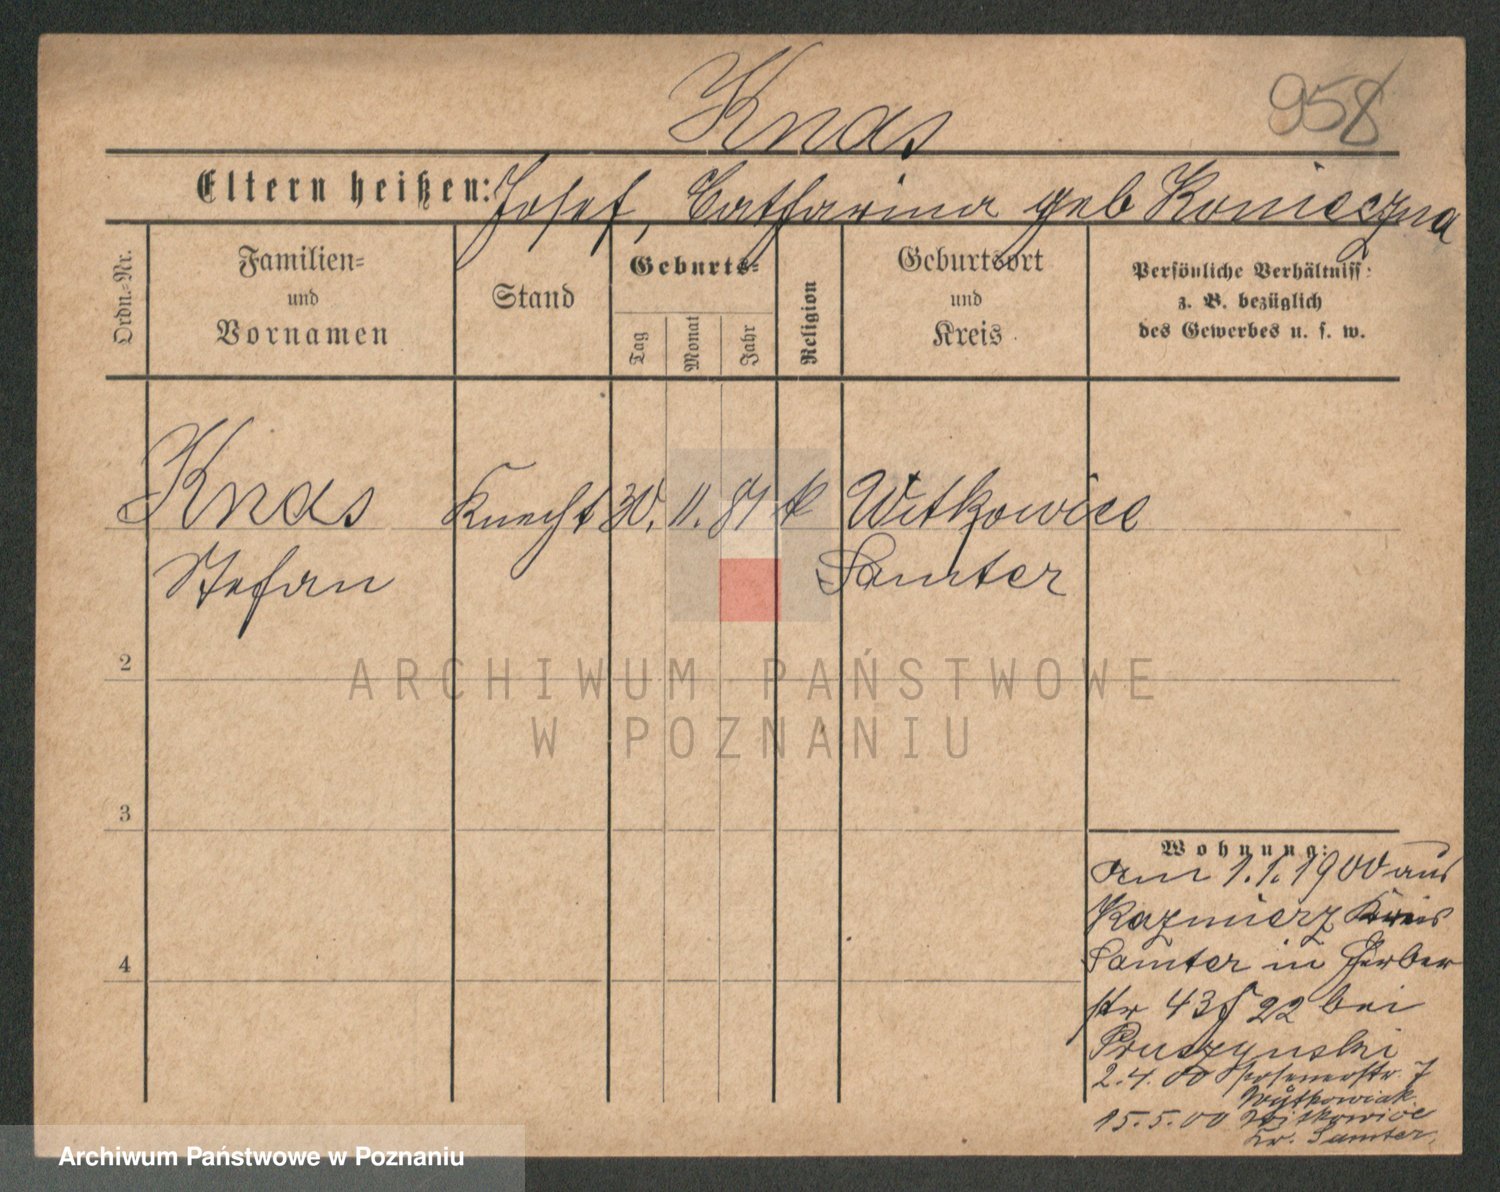 Knas
958
Eltern heißen: Josef, Catharina geb Konieczna
Ordn.-Nr.
Familien-
und
Vornamen
Stand
Geburts-
Tag
Monat
Jahr
Religion
Geburtsort
und
Kreis
Persönliche Verhältniss:
z. B. bezüglich
des Gewerbes u. s. w.
Knas Knecht 30. 11. 81 k Witkowice
Stefan Samter
2
ARCHIWUM PAŃSTWOWE
W POZNANIU
3
4
Wohnung:
am 1.1.1900 aus
Kazmierz Kreis
Samter in Gerber
str 22 bei
Pruszynski
2.4.00 Posenerstr. 7
Wytkowiak
15.5.00 Witkowice
Kr. Samter.
Archiwum Państwowe w Poznaniu